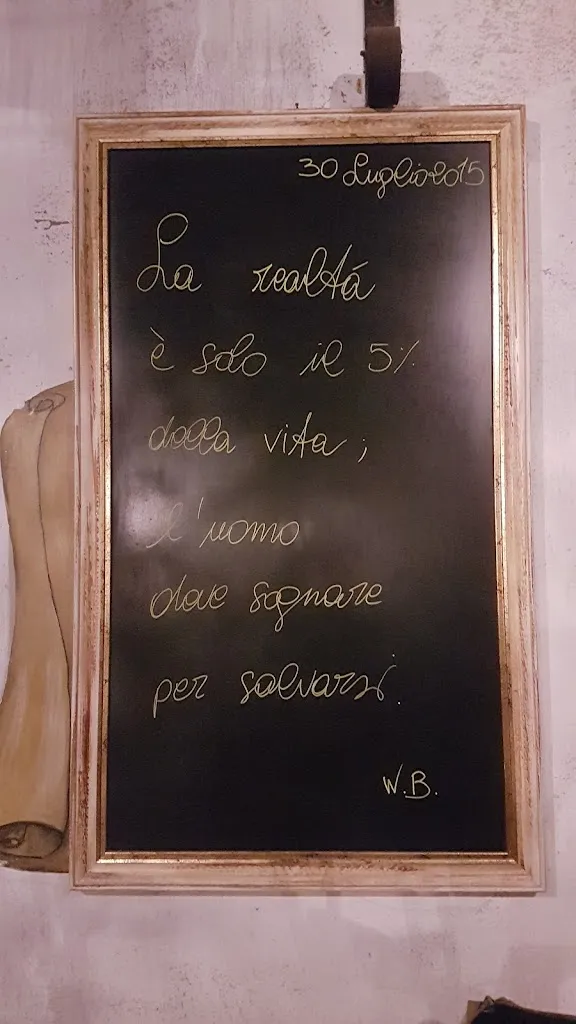 30 Luglio 2015
La realtá
è solo il 5%
della vita;
l'uomo
deve sognare
per salvarsi.
W.B.